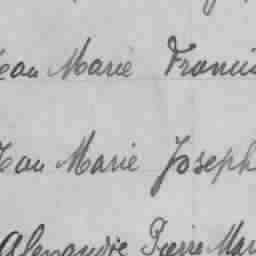 Jean Marie Francis
Jean Marie Joseph
Alexandre Pierre Mari